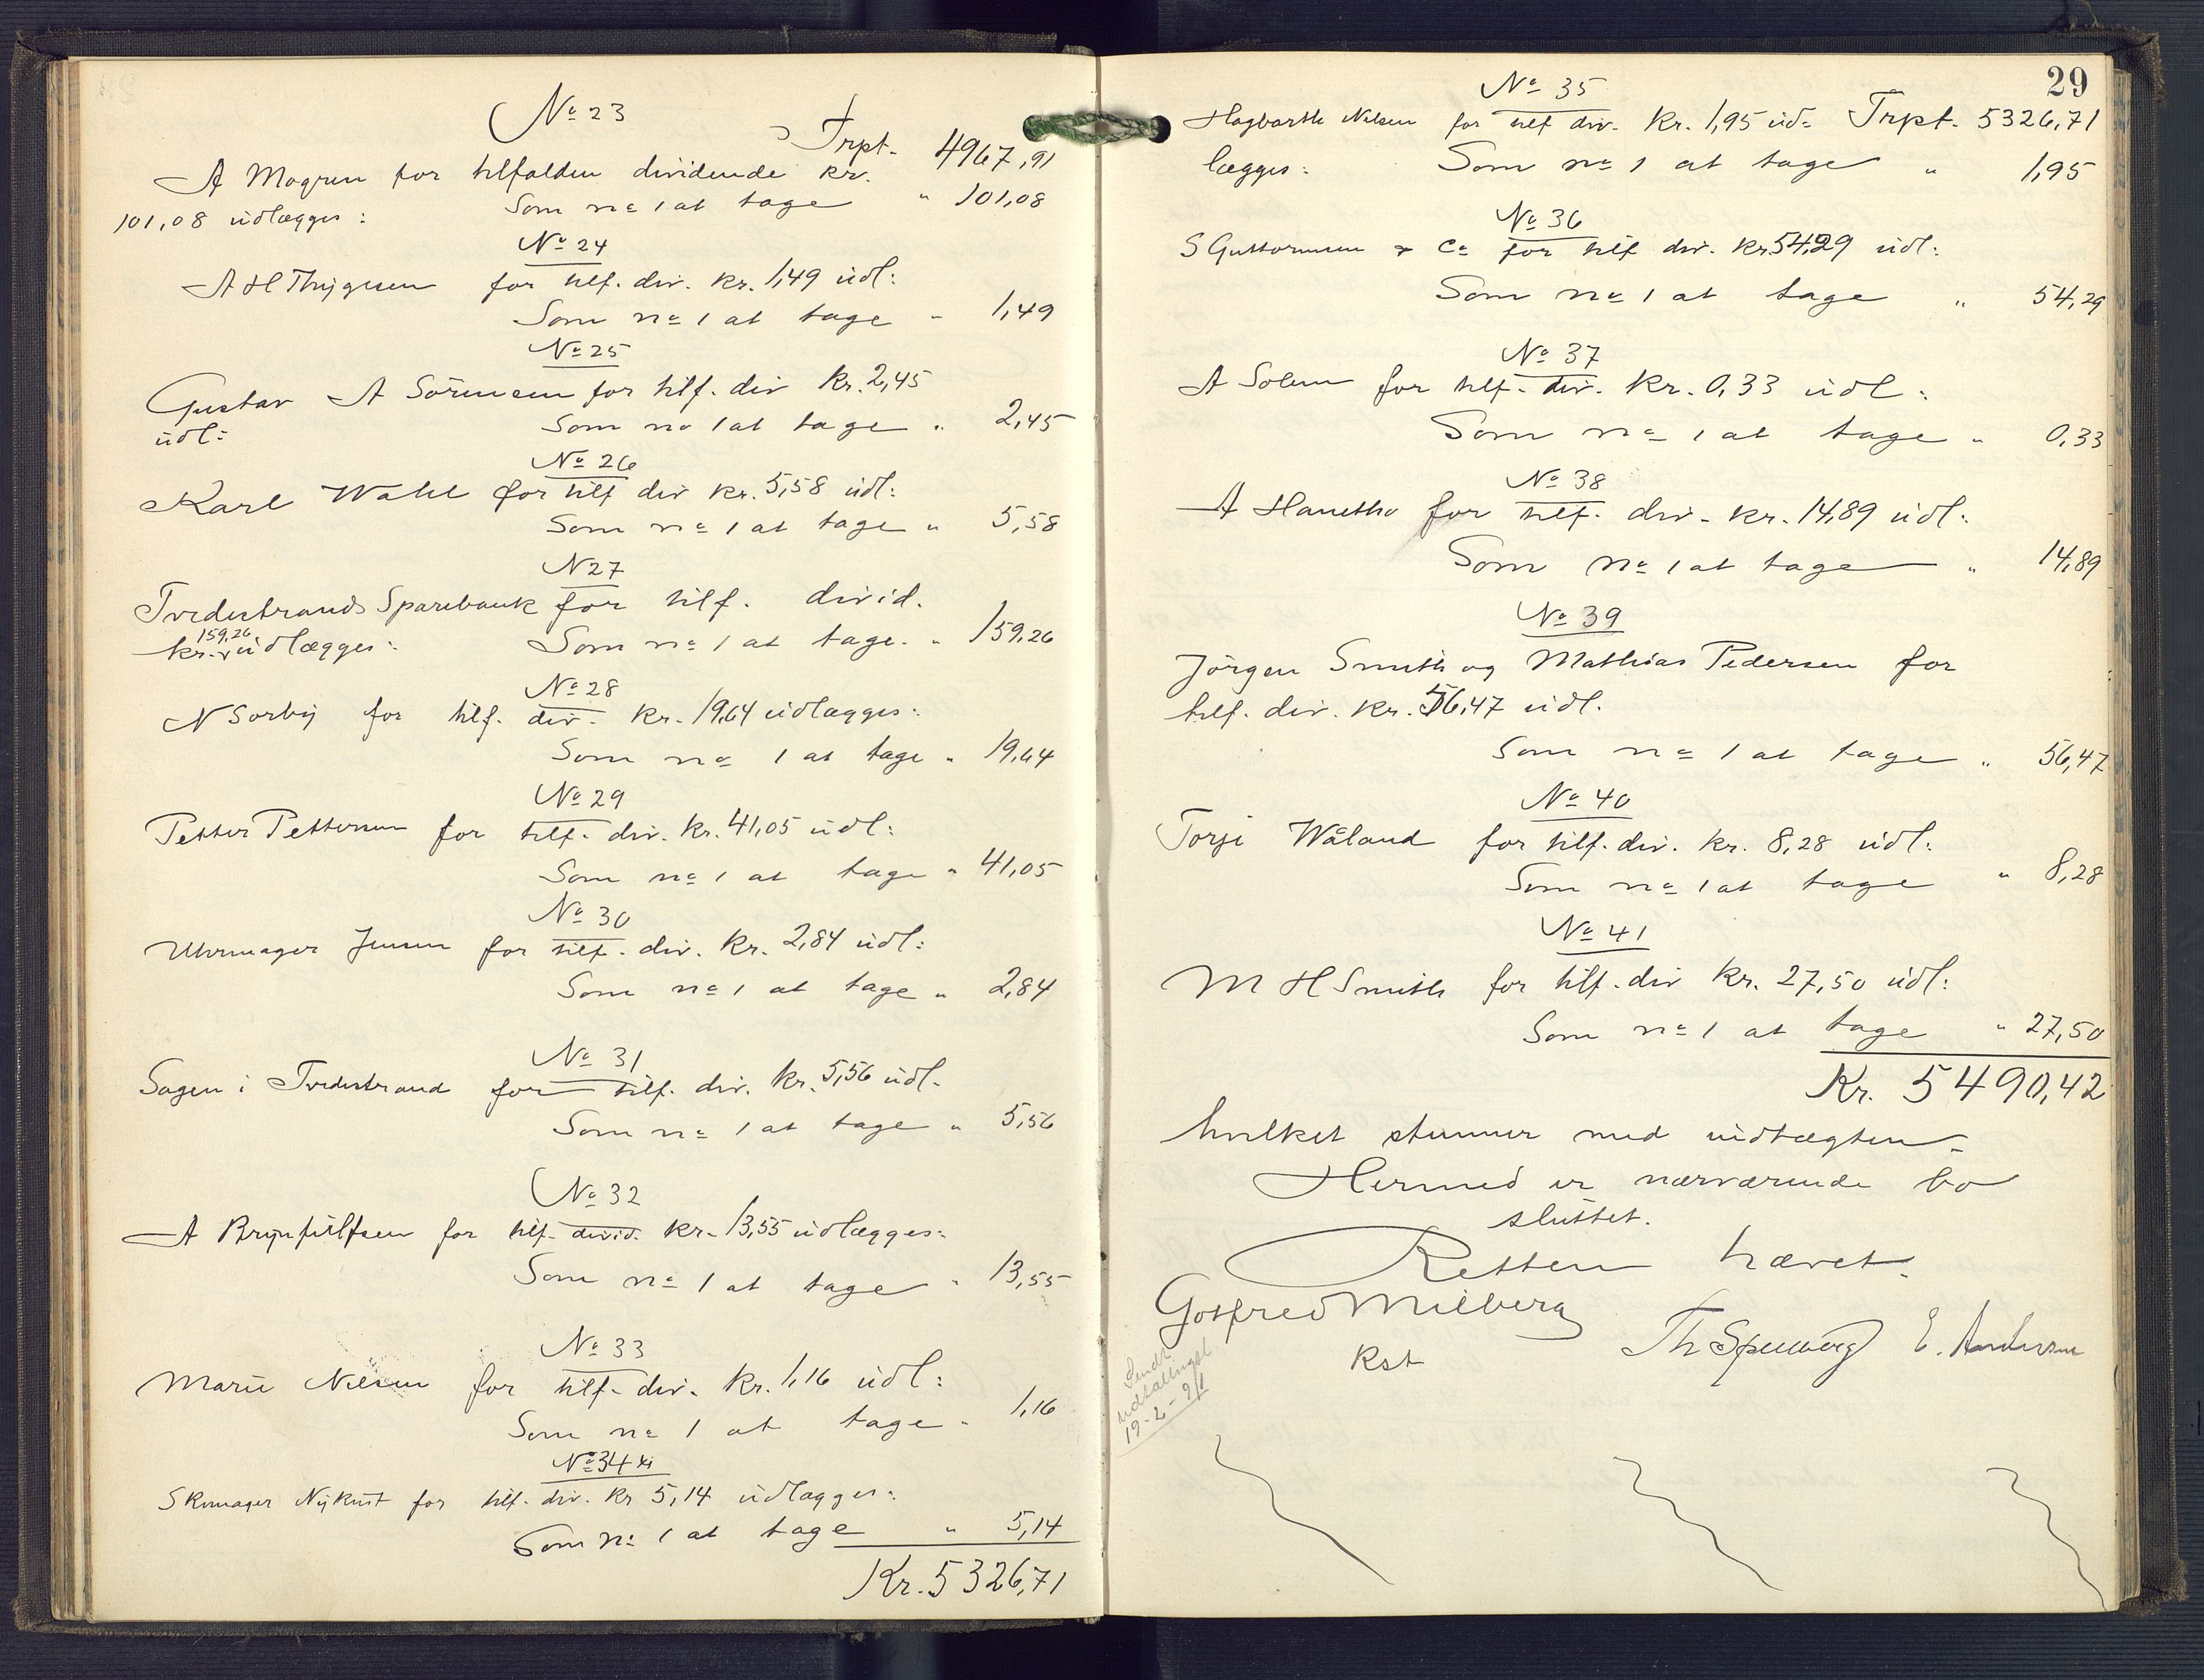 No 23
Trpt. 4967,91
A Mogren for tilfalden dividende kr.
101,08 udlægges: Som no 1 at tage " 101,08
No 24
A H Thygesen for tilf. div. kr. 1,49 udl:
Som no 1 at tage " 1,49
No 25
Gustav A Sörensen for tilf. div Kr. 2,45
udl: Som no 1 at tage " 2,45
No 26
Karl Wahl for tilf div kr. 5,58 udl:
Som no 1 at tage " 5,58
N 27
Tvedestrands Sparebank for tilf. divid.
kr. 159,26 udlægges: Som no 1 at tage. " 159,26
No 28
N Sørby for tilf. div. kr. 19,64 udlægges:
Som no 1 at tage " 19,64
No 29
Petter Pettersen for tilf. div. kr. 41,05 udl:
Som no 1 at tage " 41,05
No 30
Uhrmager Jensen for tilf. div. kr. 2,84 udl:
Som no 1 at tage " 2,84
No 31
Sagen i Tvedestrand for tilf. div. kr. 5,56 udl.
Som no 1 at tage " 5,56
No 32
A Brynhilfsen for tilf. divid. kr. 13,55 udlægges:
Som no 1 at tage " 13,55
No 33
Marie Nilsen for tilf. div. kr. 1,16 udl:
Som no 1 at tage " 1,16
No 34
Skomager Nykust for tilf. div. kr 5,14 udlægges:
Som no 1 at tage " 5,14
Kr. 5326,71
29
No 35
Hagbarth Nilsen for tilf div. kr. 1,95 ud= Trpt. 5326,71
lægges: Som no 1 at tage " 1,95
No 36
S Guttormsen & Co for tilf div. kr 54,29 udl:
Som no 1 at tage " 54,29
No 37
A Solem for tilf. div. kr. 0,33 udl:
Som no 1 at tage " 0,33
No 38
A Hanetho for tilf. div. kr. 14,89 udl:
Som no 1 at tage " 14,89
No 39
Jörgen Smith og Mathias Pedersen for
tilf. div. kr. 56,47 udl.
Som no 1 at tage " 56,47
No 40
Torje Wåland for tilf. div. kr. 8,28 udl:
Som no 1 at tage " 8,28
No 41
M H Smith for tilf. div kr. 27,50 udl:
Som no 1 at tage " 27,50
Kr. 5490,42
hvilket stemmer med indtægten.
Hermed er nærværende bo
sluttet.
Retten hævet.
Gotfred Milberg
Kst
E. Andersen
Sendt
19-2-21